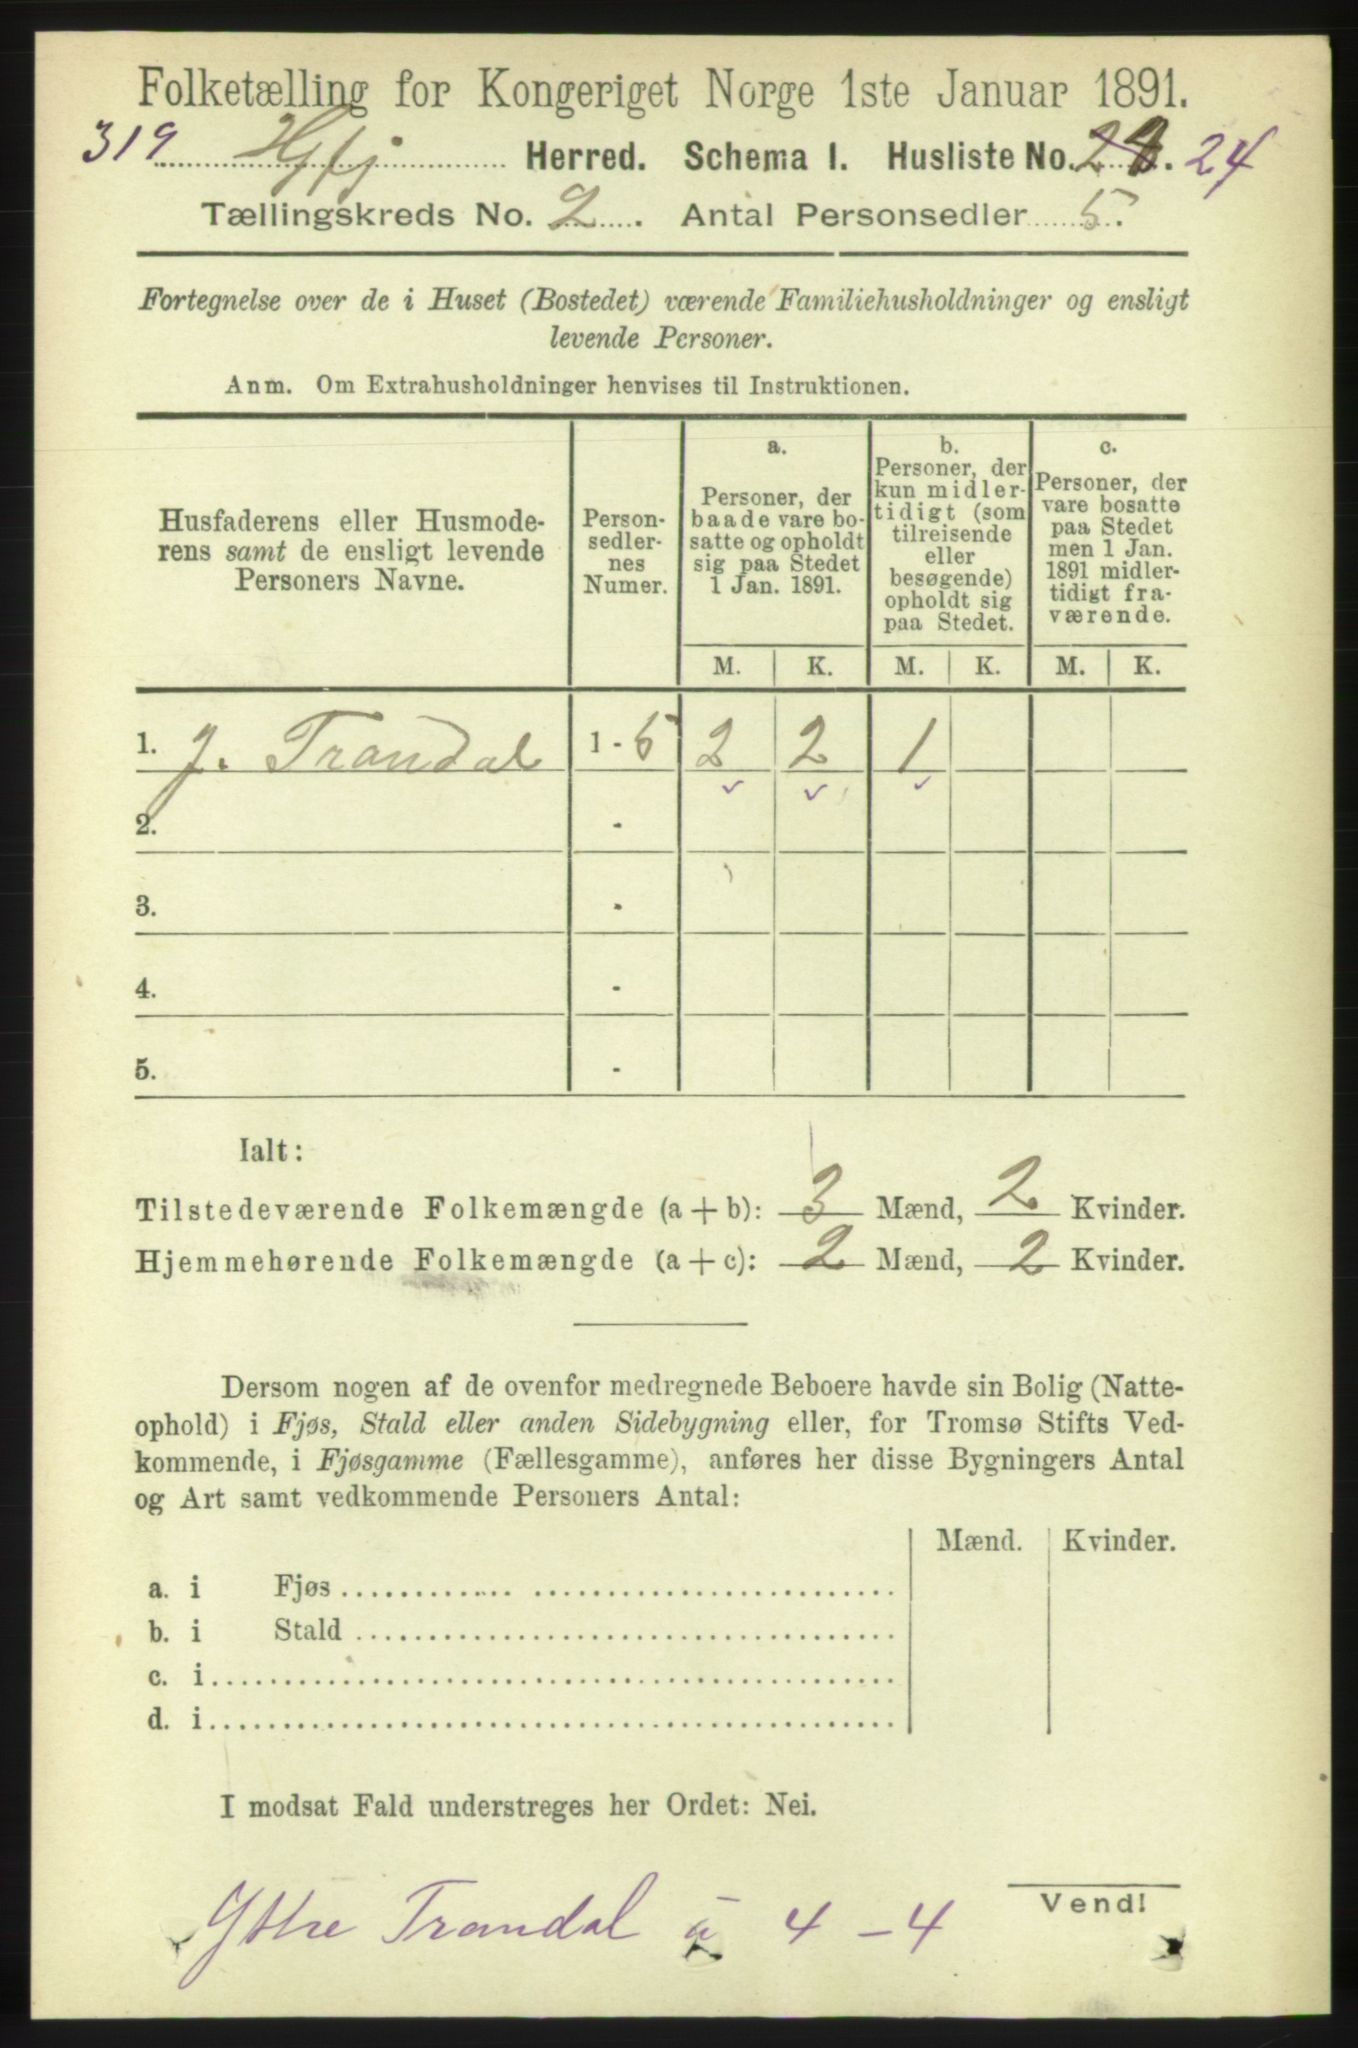 Folketælling for Kongeriget Norge 1ste Januar 1891.
319 Herred. Schema I. Husliste No. 24
Tællingskreds No. 2. Antal Personsedler 5.
Fortegnelse over de i Huset (Bostedet) værende Familiehusholdninger og ensligt
levende Personer.
Anm. Om Extrahusholdninger henvises til Instruktionen.
Husfaderens eller Husmode-
rens samt de ensligt levende
Personers Navne.
Person-
sedler-
nes
Numer.
a.
Personer, der
baade vare bo-
satte og opholdt
sig paa Stedet
1 Jan. 1891.
b.
Personer, der
kun midler-
tidigt (som
tilreisende
eller
besøgende)
opholdt sig
paa Stedet.
c.
Personer, der
vare bosatte
paa Stedet
men 1 Jan.
1891 midler-
tidigt fra-
værende.
M. K. M. K. M. K.
1. J. Trandal 1 - 5 2 2 1
2. -
3. -
4. -
5. -
Ialt:
Tilstedeværende Folkemængde (a + b): 3 Mænd, 2 Kvinder.
Hjemmehørende Folkemængde (a + c): 2 Mænd, 2 Kvinder.
Dersom nogen af de ovenfor medregnede Beboere havde sin Bolig (Natte-
ophold) i Fjøs, Stald eller anden Sidebygning eller, for Tromsø Stifts Ved-
kommende, i Fjøsgamme (Fællesgamme), anføres her disse Bygningers Antal
og Art samt vedkommende Personers Antal:
Mænd. Kvinder.
a. i Fjøs
b. i Stald
c. i
d. i
I modsat Fald understreges her Ordet: Nei.
Vend!
Ytre Trandal 4 - 4